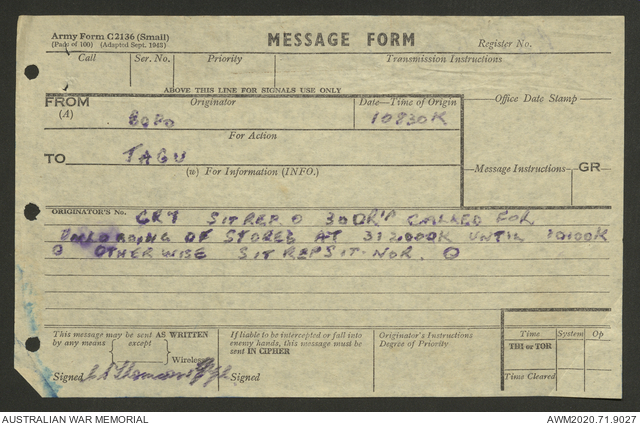 Army Form C2136 (Small)
(Pads of 100) (Adapted Sept. 1943)
MESSAGE FORM
Register No.
Call
Ser. No.
Priority
Transmission Instructions
ABOVE THIS LINE FOR SIGNALS USE ONLY
FROM
(A)
Originator
Date—Time of Origin
Office Date Stamp
10830K
For Action
TO
TAGU
(w) For Information (INFO.)
Message Instructions
GR
ORIGINATOR'S No.
SITREP O 30 OR'P CALLED FOR
OF STORES AT 312000K UNTIL
O OTHERWISE SITREP SIT. NOR. O
This message may be sent AS WRITTEN
by any means except
Wireless
Signed
If liable to be intercepted or fall into
enemy hands, this message must be
sent IN CIPHER
Signed
Originator's Instructions
Degree of Priority
Time System Op
THI or TOR
Time Cleared
AUSTRALIAN WAR MEMORIAL
AWM2020.71.9027